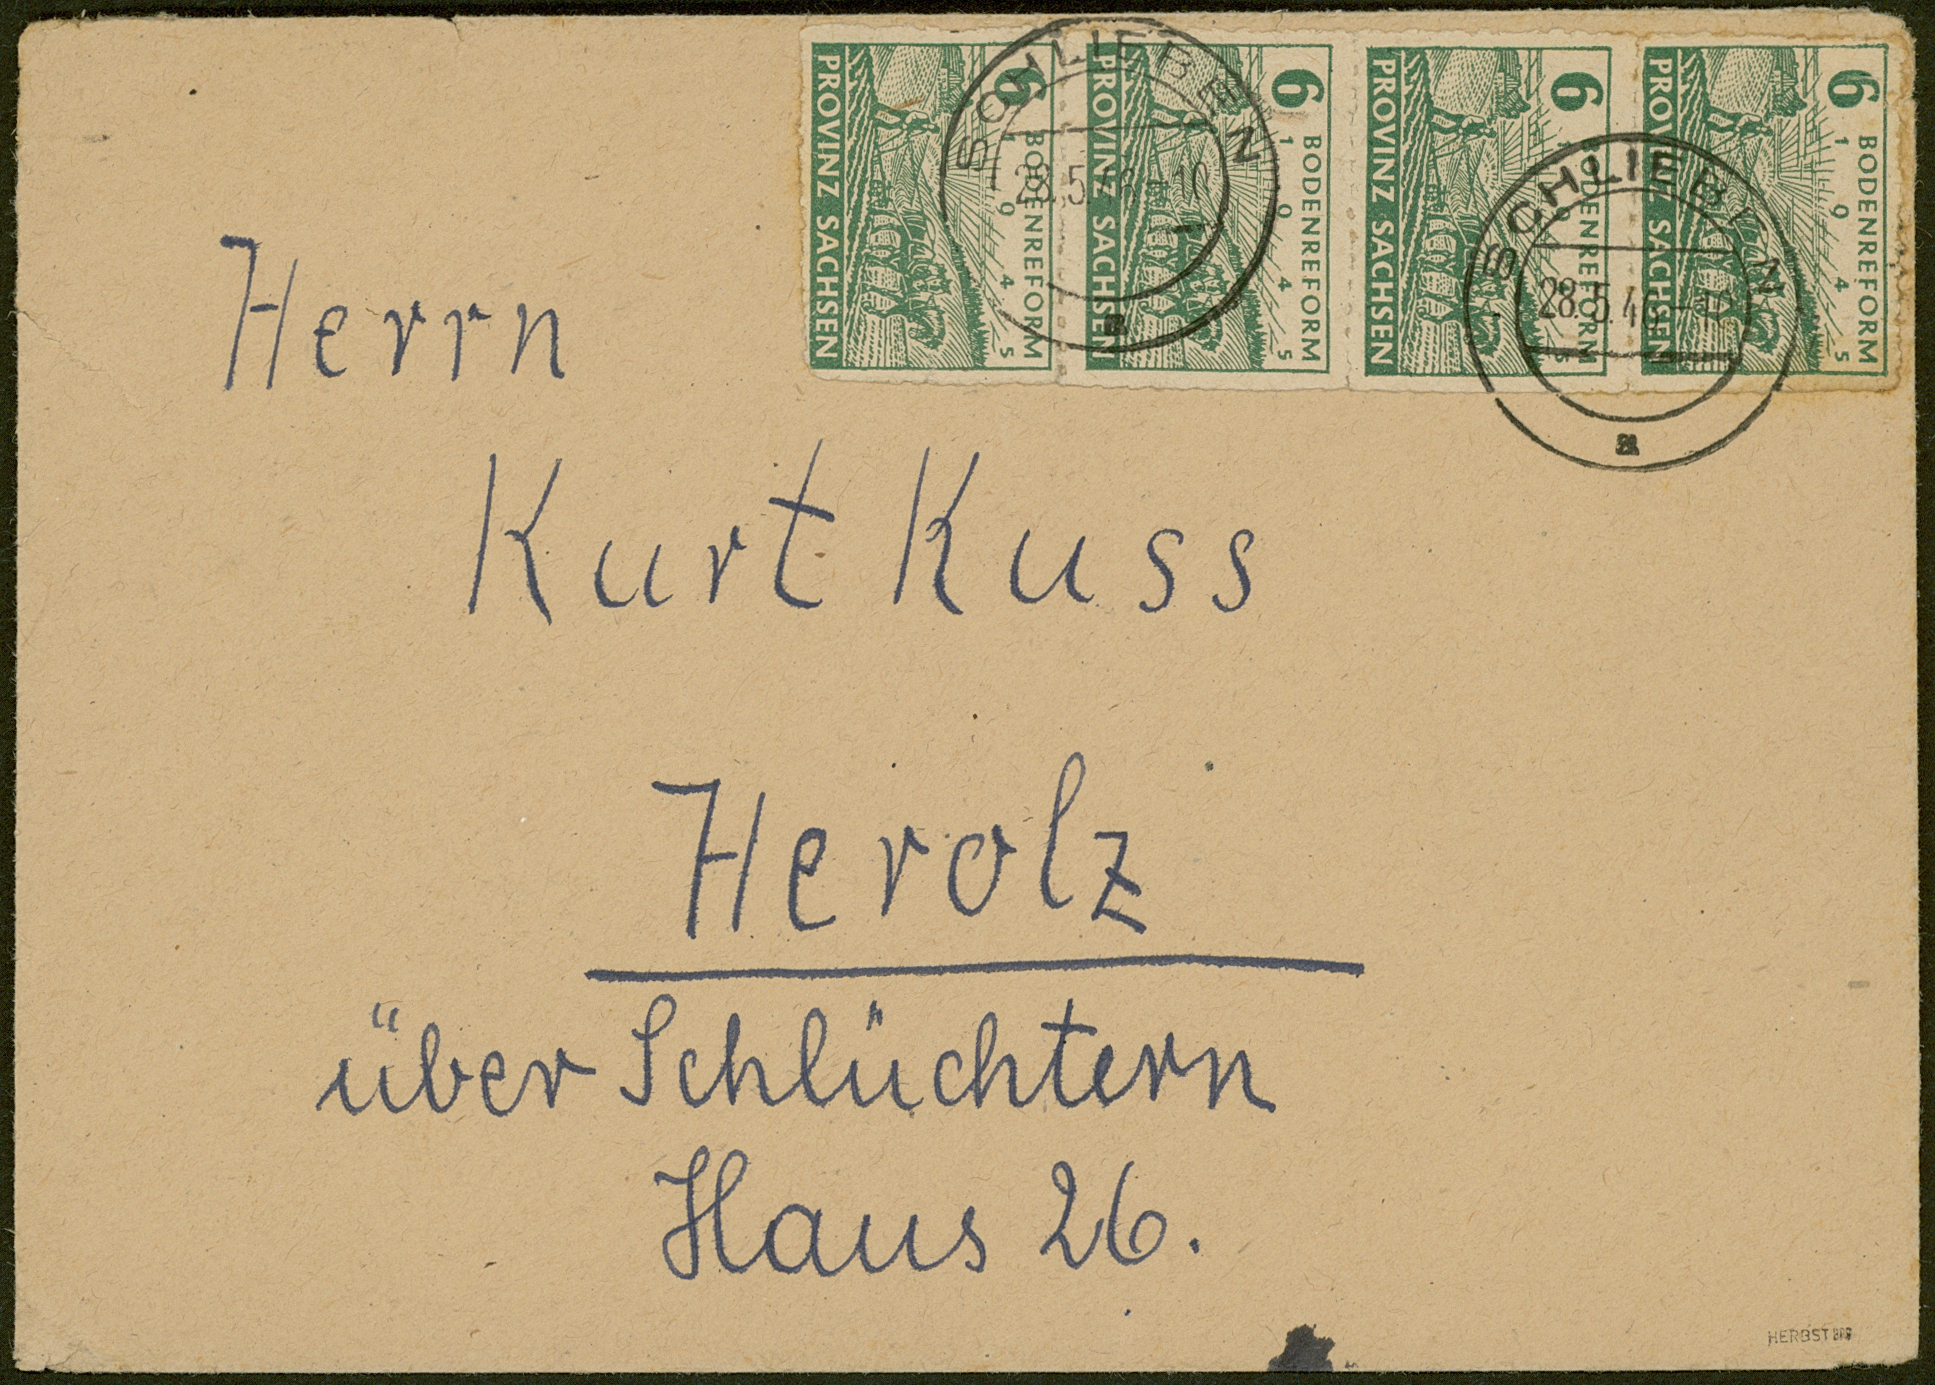 6
BODENREFORM
1945
PROVINZ SACHSEN
6
BODENREFORM
1945
PROVINZ SACHSEN
6
BODENREFORM
1945
PROVINZ SACHSEN
6
BODENREFORM
1945
PROVINZ SACHSEN
SCHLIEBEN
28.5.46-10
a
SCHLIEBEN
28.5.46-10
a
Herrn
Kurt Kuss
Herolz
über Schlüchtern
Haus 26.
HERBST BPP